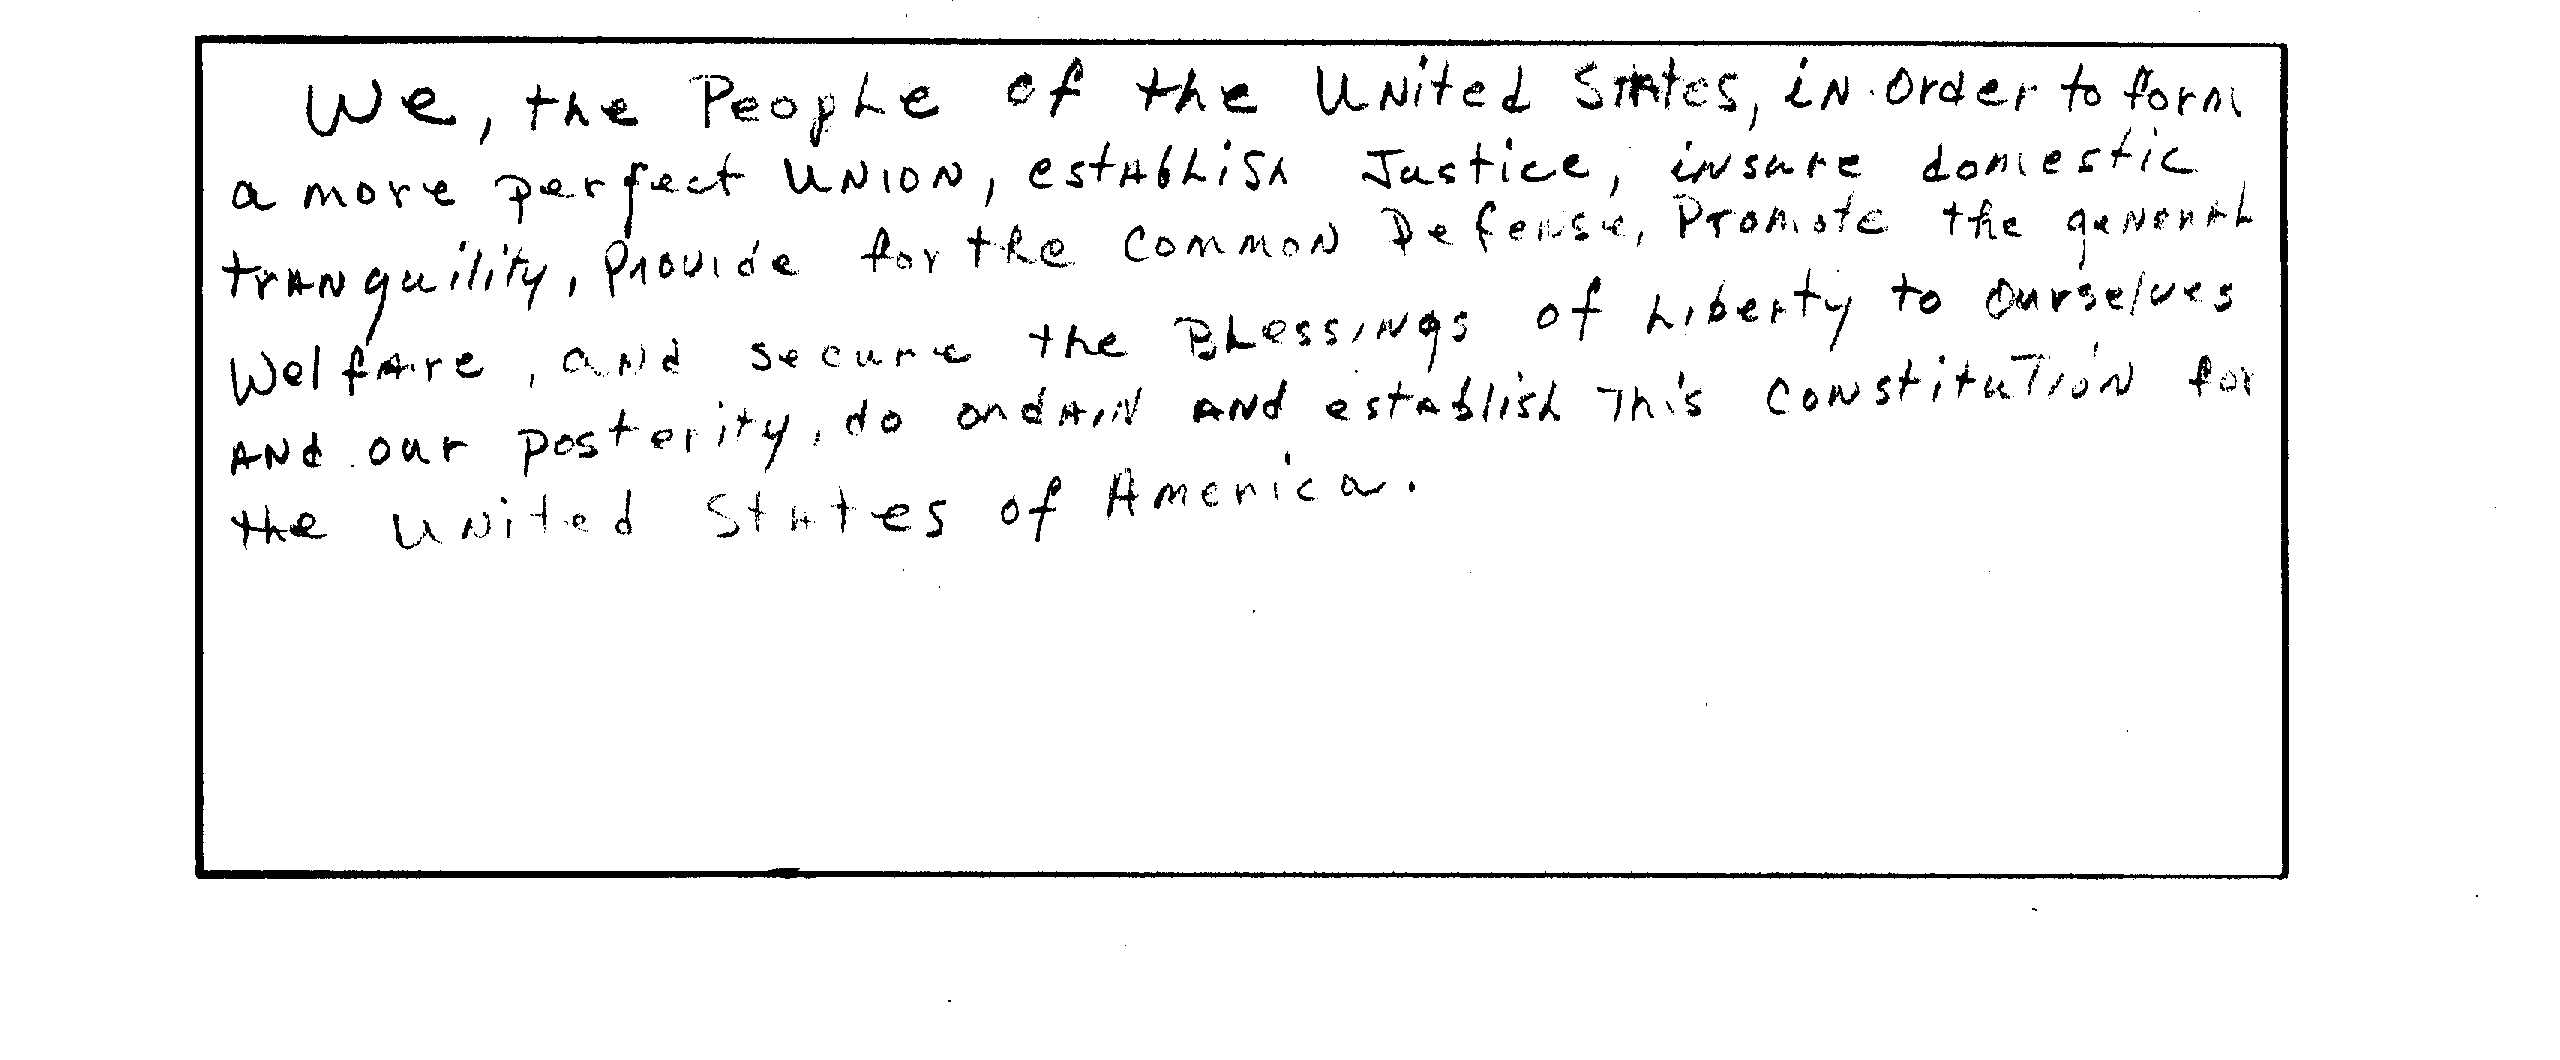 We, the People of the United States, in order to form
a more perfect Union, establish Justice, insure domestic
tranquility, Provide for the Common Defense, Promote the general
Welfare, and secure the Blessings of Liberty to Ourselves
and our posterity, do ordain and establish This Constitution for
the United States of America.